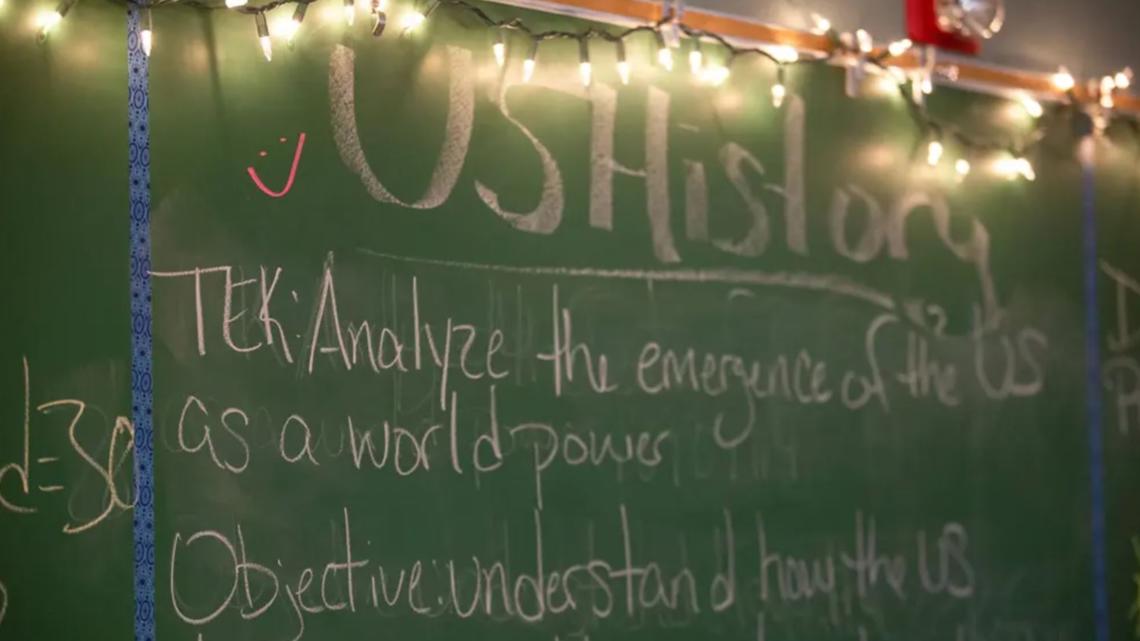 US History
TEK: Analyze the emergence of the US
as a world power
d=30
Objective: understand how the US